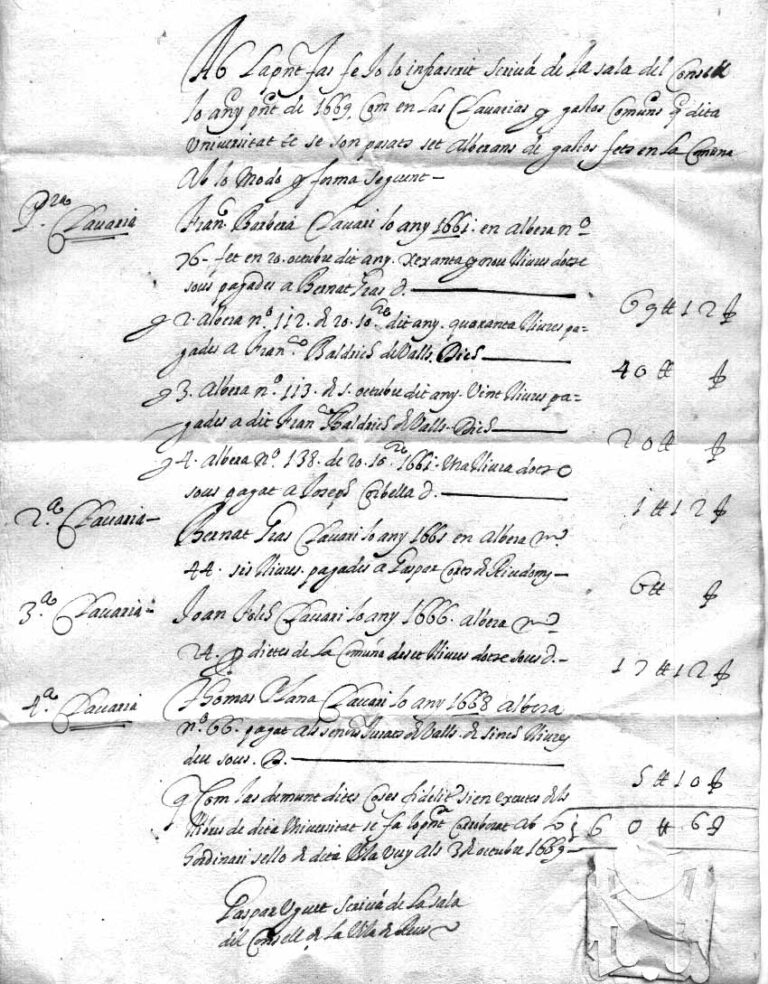 Ab la pnt fas fe Jo lo infrascrit scrivá de la sala del Consell
lo any pnt de 1669. Com en las Clavarias y gastos Comuns de dita
Universitat &c se son posats set Alberans de gastos fets en la Comuna
Ab lo modo y forma seguent—
Pra Clavaria
Franch Barberá Clavari lo any 1661. en albera no
76- fet en 20. octubre dit any. xexanta y nou lliures dotze
sous pagades a Bernat Gras d. 69 ₶ 12 ẞ
y 2. Albera no. 112. de 20. 10re dit any. quaranta lliures pa-
gades a Franco Baldrich de Valls. Dich 40 ₶ ẞ
y 3. Albera no. 113. de 5. octubre dit any. Vint lliures pa-
gades a dit Fran Baldrich de Valls. Dich 20 ₶ ẞ
y 4. Albera no. 138. de 20. 10re 1661. Una lliura dotze
sous pagat a Joseph Corbella d. 1 ₶ 12 ẞ
2.a Clavaria—
Bernat Gras Clavari lo any 1665 en Albera no
44. sis lliures. pagades a Gaspar Cores de Riudoms— 6 ₶ ẞ
3.a Clavaria-
Joan Folch Clavari lo any 1666. albera no
24. per dietes de la Comuna deset lliures dotze sous d.- 17 ₶ 12 ẞ
4.a Clavaria
Thomas Plana Clavari lo any 1668 Albera
no. 66. pagat als senors Jurats de Valls. de sinch lliures
deu sous. D. 5 ₶ 10 ẞ
y Com las demunt dites Coses fidelit sien extretes dels
llibres de dita Universitat se fa lo pnt Corroborat Ab lo 160 ₶ 6 ẞ
hordinari sello de dita Vila Vuy Als 3 de octubre 1669
Gaspar Uguet Scrivá de la sala
del Consell de la Vila de Reus